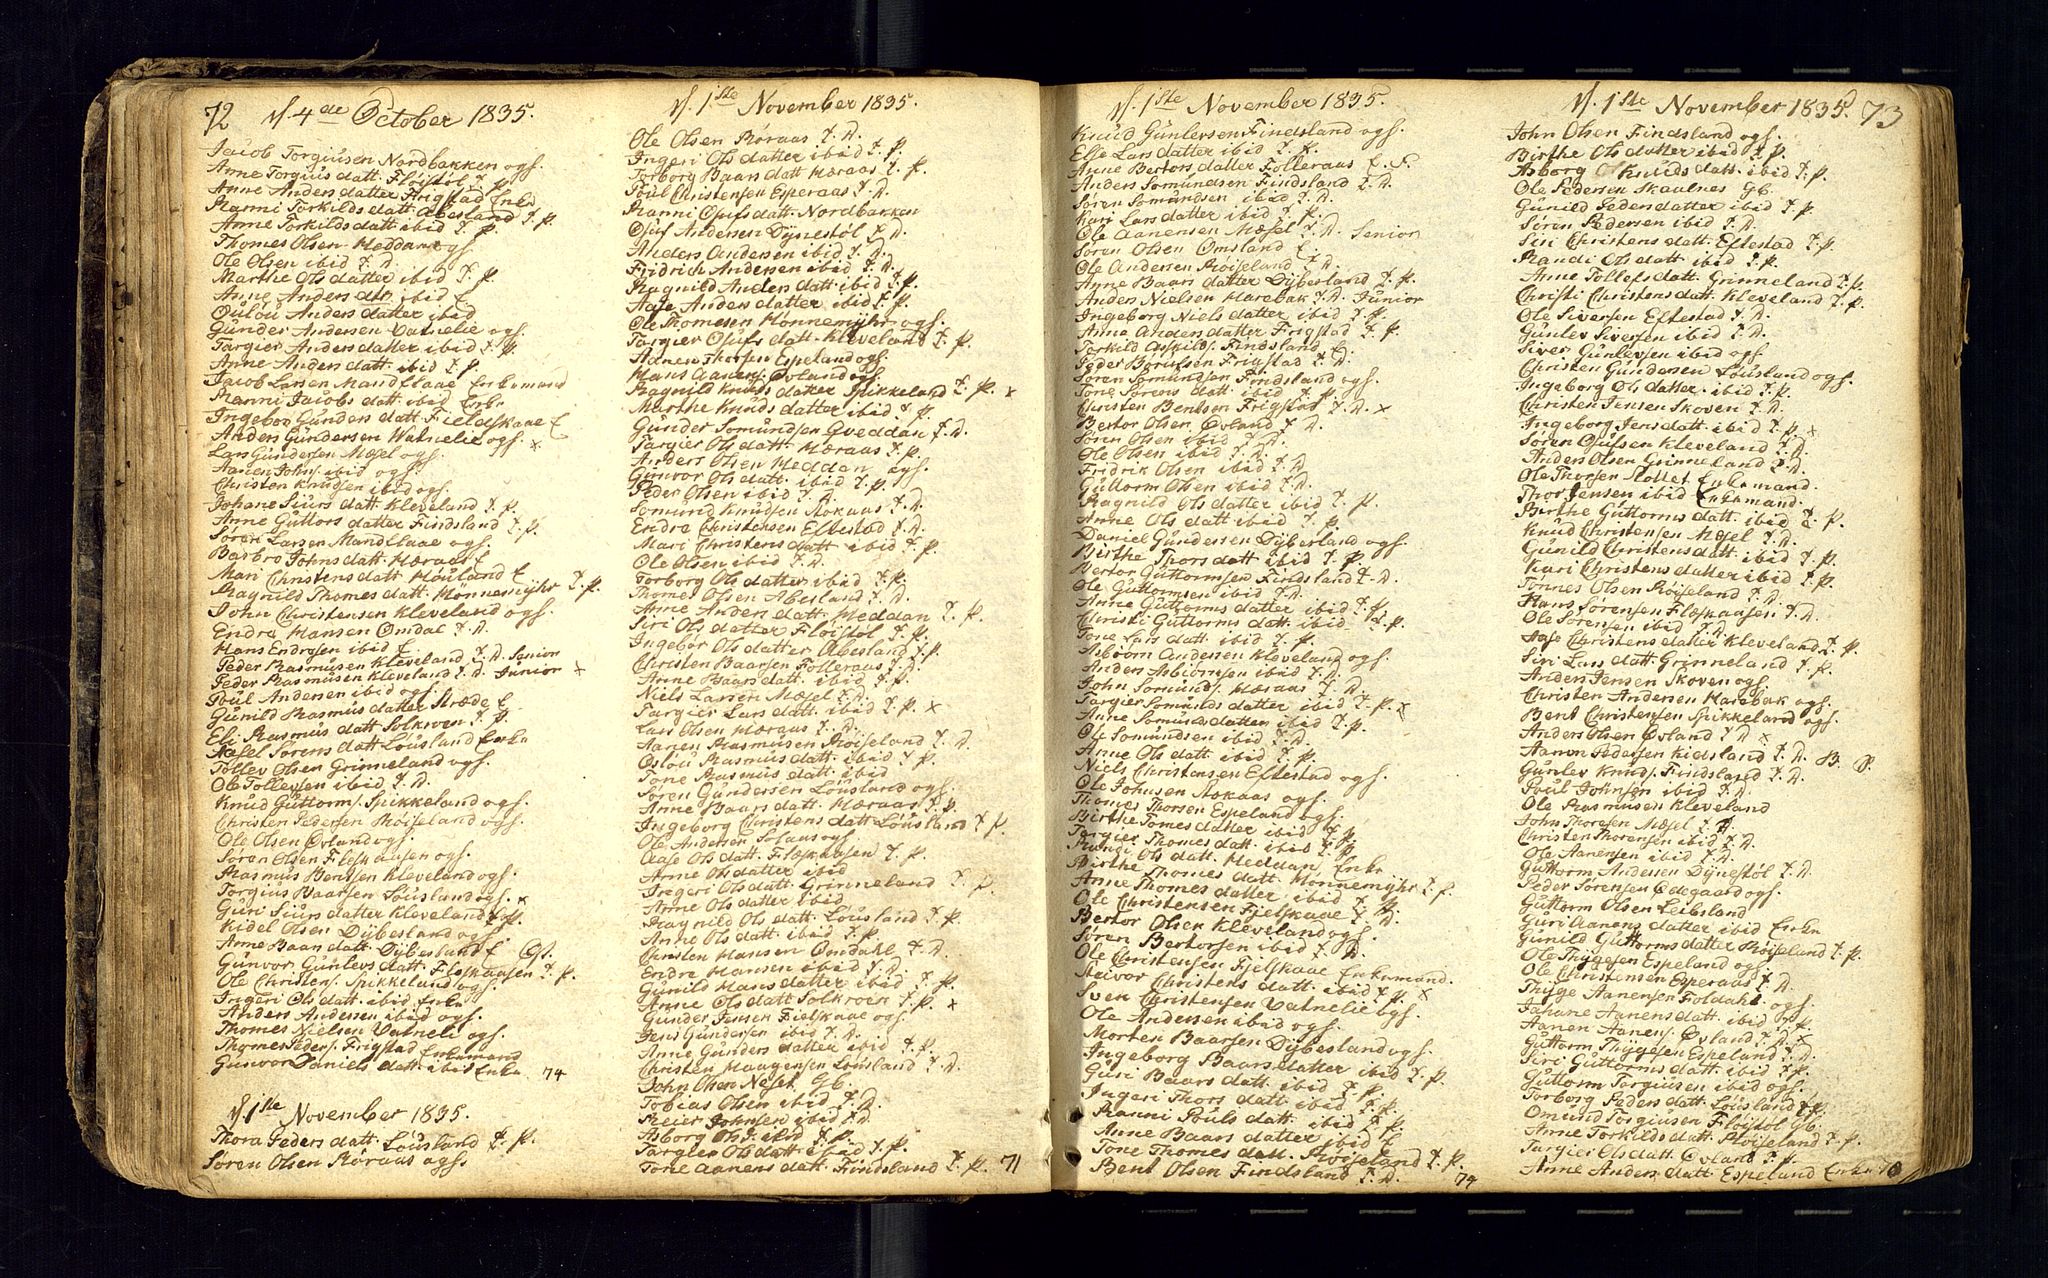 72 d. 4de October 1835.
Jacob Torgiusen Nordbakken ogf.
Anne Torgius datt. Fløistøl T. P.
Anne Anders datter Frigstad Enke
Ranni Torkilds datt. Abesland T. P.
Anne Torkilds datt. ibid T. P.
Thomes Olsen Meddan ogf.
Ole Olsen ibid T. D.
Marthe Ols datter ibid T. P.
Anne Anders dtr. ibid E
Oulou Anders datter ibid
Gunder Andersen Vatnelie ogf.
Targier Anders datter ibid T. P.
Anne Anders datt. ibid T. P.
Jacob Larsen Mandflaae Enkemand
Ranni Jacobs datt. ibid Enke
Ingebor Gunders datt. Fieldskaae E
Anders Gundersen Watnelie ogf. x
Lars Gundersen Mæsel ogf.
Aanen Johns. ibid ogf.
Christen Knudsen ibid ogf.
Johane Siurs datt. Kleveland T. P.
Anne Guttors datter Findsland T. P.
Søren Larsen Mandflaae ogf.
Barbro Johns datt. Mæraas E
Mari Christens datt. Houland E
Ragnild Thomes datt. Mønnemyhr T. P.
John Christensen Kleveland ogf.
Endre Hansen Omdal T. D.
Hans Endresen ibid E
Peder Rasmusen Kleveland T. D. Senior
Peder Rasmusen Kleveland T. D. Junior x
Poul Andersen ibid ogf.
Gunild Rasmus datter Stræde E
Eli Rasmus datt. Solkroen T. P.
Assel Sørens datt. Lousland Enke
Tollev Olsen Grinneland ogf.
Ole Tollevsen ibid T. D.
Knud Guttorms. Spikkeland ogf.
Christen Pedersen Røiseland ogf.
Ole Olsen Øvland ogf.
Søren Olsen Fleskaasen ogf.
Rasmus Bentsen Kleveland ogf.
Torgius Baarsen Lousland ogf. x
Guri Siurs datter Kleveland T. P.
Kidel Olsen Dybesland ogf.
Anne Baars datt. Dybesland E
Gunvor Gunlevs datt. Fleskaasen T. P.
Ole Christens. Spikkeland ogf.
Ingeri Ols datt. ibid Enke
Anders Andersen ibid ogf.
Thomes Nielsen Vatneli ogf.
Thomes Peders. Frigstad Enkemand
Gunvor Daniels datt. ibid Enke 74
d. 1ste November 1835.
Thora Peders datt. Lousland T. P.
Søren Olsen Røraas ogf.
d. 1ste November 1835.
Ole Olsen Røraas T. D.
Ingeri Ols datter ibid T. P.
Torborg Baars datt. Mæraas T. P.
Poul Christensen Esperaas T. D.
Ranni Osufs datt. Nordbakken
Osuf Andersen Dynestøl T. D.
Anders Andersen ibid T. D.
Fridrich Andersen ibid T. D.
Ragnild Anders datt. ibid T. P.
Aase Anders datter ibid T. P.
Ole Thomesen Mønnemyhr ogf.
Targier Osufs datt. Kleveland T. P.
Aanen Thorsen Espeland ogf.
Hans Aanens. Øvland ogf.
Ragnild Knuds datter Spikkeland T. P. x
Marthe Knuds datter ibid T. P.
Gunder Somundsen Gveddan T. D.
Targier Ols datt. Mæraas T. P.
Anders Olsen Meddan ogf.
Gunvor Ols datt. ibid T. P.
Peder Olsen ibid T. D.
Somund Knudsen Aokaas T. D.
Endre Christensen Eftestad T. D.
Mari Christens datt. ibid T. P.
Ole Olsen ibid T. D.
Torborg Ols datter ibid T. P.
Thomes Olsen Abesland T. D.
Anne Anders datt. Meddan T. P.
Siri Ols datter Fløistøl T. P.
Ingebor Ols datter Abesland T. P.
Christen Baarsen Folleraas T. D.
Anne Baars datt. ibid T. P.
Niels Larsen Mæsel T. D.
Targier Lars datt. ibid T. P. x
Lars Olsen Mæraas T. D.
Aanen Rasmusen Røiseland T. D.
Oslou Rasmus datt. ibid T. P.
Tone Rasmus datt. ibid
Søren Gundersen Lousland ogf.
Anne Baars datt. Mæraas T. P.
Ingeborg Christens datt. Lousland T. P.
Ole Andersen Solaas ogf.
Aase Ols datt. Fleskaasen T. P.
Anne Ols datter ibid
Ingeri Ols datt. Grinneland T. P.
Anne Ols datter ibid
Ragnild Ols datt. Lousland T. P.
Anne Ols datt. ibid T. P.
Christen Hansen Omdahl T. D.
Endre Hansen ibid T. D.
Gunild Hans datter ibid T. P.
Anne Ols datt. Solkroen T. P. x
Gunder Jensen Fielskaae ogf.
Jens Gundersen ibid T. D.
Anne Gunders datter ibid T. P.
Christen Maagensen Lousland T. D.
John Olsen Neset Gb.
Tobias Olsen ibid T. D.
Reier Johnsen ibid T. D.
Asborg Ols d. ibid T. P.
Targier Ols datt. ibid T. P.
Tone Aanens datt. Findsland T. P. 71
d. 1ste November 1835.
Knud Gunlevsen Findsland ogf.
Else Lars datter ibid T. P.
Anne Bertors datter Folleraas E. F.
Anders Somundsen Findsland T. D.
Søren Somundsen ibid T. D.
Kari Lars datter ibid T. P.
Ole Aanensen Mæsel T. D. Senior
Søren Olsen Omsland E.
Ole Andersen Røiseland T. D.
Anne Baars datter Dybesland T. P.
Anders Nielsen Harebak T. D. Junior
Ingeborg Niels datter ibid T. P.
Anna Anders datter Frigstad T. P.
Torkild Askilds. Findsland E.
Peder Børufsen Frigstad T. D.
Søren Somundsen Findsland ogf.
Tone Sørens datt. ibid T. P.
Christen Bentsen Frigstad T. D. x
Bertor Olsen Øvland T. D.
Søren Olsen ibid T. D.
Ole Olsen ibid T. D.
Fridrik Olsen ibid T. D.
Guttorm Olsen ibid T. D.
Ragnild Ols datter ibid T. P.
Anne Ols datt. ibid T. P.
Daniel Gundersen Dyberland ogf.
Birthe Thors datt. ibid T. P.
Bertor Guttormsen Findsland T. D.
Ole Guttormsen ibid T. D.
Anne Guttorms datter ibid T. P.
Christi Guttorms datt. ibid T. P.
Tone Lars datt. ibid T. P.
Asbiørn Andersen Kleveland ogf.
Anders Asbiørnsen ibid T. D.
John Somunds. Mæraas T. D.
Targier Somunds datter ibid T. P. x
Anne Somunds datter ibid T. P.
Ole Somundsen ibid T. D.
Anne Ols datt. ibid T. P.
Niels Christensen Eftestad ogf.
Ole Johnsen Aokaas ogf.
Thomes Thorsen Espeland ogf.
Birthe Tomes datter ibid T. P.
Targier Thomes datt. ibid T. P.
Randi Ols datt. Meddan Enke
Birthe Thomes datt. Mønnemyhr T. P.
Anne Thomes datter ibid T. P.
Ole Christensen Fjelskaae T. D.
Bertor Olsen Kleveland ogf.
Søren Bertorsen ibid T. D.
Ole Christensen Fjelskaae Enkemand.
Reivor Christens datt. ibid T. P. x
Sven Christensen Vatnelie ogf.
Ole Andersen ibid ogf.
Morten Baarsen Dybesland ogf.
Ingeborg Baars datter ibid T. P.
Guri Baars datt. ibid T. P.
Ingeri Thors datt. ibid T. P.
Ranni Pouls datt. ibid T. P.
Anne Baars datter ibid E
Tone Thomes datt. Røiseland T. P.
Bent Olsen Findsland T. D. 74
d. 1ste November 1835. 73
John Olsen Findsland ogf.
Birthe Ols datter ibid T. P.
Asborg Knuds datt. ibid T. P.
Ole Pedersen Skaulnes Gb.
Gunild Peders datter ibid T. P.
Søren Pedersen ibid T. D.
Siri Christens datt. Eftestad T. P.
Randi Ols datt. ibid T. P.
Anne Tollefs datt. Grinneland T. P.
Christi Christens datt. Kleveland T. P.
Ole Siversen Eftestad T. D.
Gunlev Siversen ibid T. D.
Siver Gunlevsen ibid ogf.
Christen Gundersen Lousland ogf.
Ingeborg Ols datter ibid T. P.
Christen Jensen Skoven T. D.
Ingeborg Jens datt. ibid T. P. x
Søren Osufsen Kleveland T. D.
Anders Olsen Grinneland T. D.
Ole Thorsen Slottet Enkemand.
Thor Jensen ibid Enkemand.
Birthe Guttorms datt. ibid T. P.
Knud Christensen Mæsel T. D.
Gunild Christens datt. ibid T. P.
Kari Christens datter ibid T. P.
Tønnes Olsen Røiseland T. D.
Hans Sørensen Fleskaasen T. D.
Ole Sørensen ibid T. D.
Aase Christens datter Kleveland T. P.
Siri Lars datt. Grinneland T. P.
Anders Jensen Skoven ogf.
Christen Andersen Harebak ogf.
Bent Christensen Spikkeland ogf.
Anders Olsen Øvland T. D. x
Aanen Pedersen Kidsland T. D. B. S.
Gunlev Knuds. Findsland T. D.
Poul Johnsen ibid T. D.
Ole Rasmusen Kleveland
John Thorsen Mæsel T. D.
Christen Thorensen ibid T. D.
Ole Aanensen ibid T. D.
Guttorm Andersen Dynestøl T. D.
Peder Sørensen Ødegaard ogf.
Guttorm Olsen Leibsland
Guri Aanens datter ibid Enke
Gunild Guttorms datter Røiseland T. P.
Ole Thygesen Espeland ogf.
Ole Christensen Esperaas T. D.
Thyge Aanensen Foldahl ogf.
Jahane Aanens datt. ibid T. P.
Aanen Aanens. Øvland T. D. x
Guttorm Thygesen Espeland T. D.
Siri Guttorms datt. ibid T. P.
Guttorm Torgiusen ibid ogf.
Torborg Peders datt. Lousland T. P.
Omund Torgiusen Fløistøl Gb.
Anne Torkilds datt. Røiseland T. P.
Targier Ols datt. Øvland T. P.
Anne Anders datt. Espeland Enke